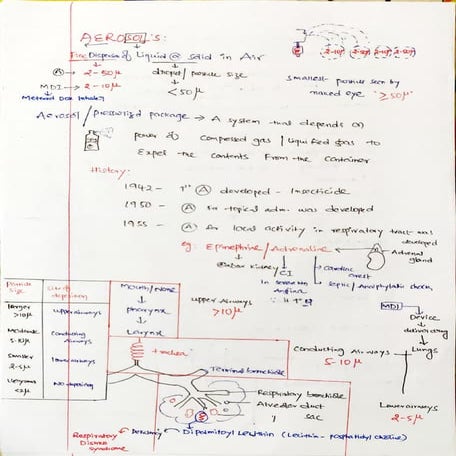 AEROSOLS:
Fine Dispersion of Liquid or solid in Air
A → 2-50μ
droplet/particle size
<50μ
MDI → 2-10μ
Metered Dose Inhaler
smallest particle seen by
naked eye "≥50μ"
Aerosol/Pressurized package → A system that depends on
power of compressed gas / Liquified gas to
Expel the contents From the container
History:
1942 - 1st A developed - Insecticide
1950 - A for topical adm. was developed
1955 - A for local activity in respiratory tract was
developed
eg: Epinephrine/Adrenaline
Adrenal
gland
kidney
CI
cardiac
arrest
septic/Anaphylactic shock
Particle
size
Site of
deposition
larger
>10μ
upper airways
Moderate
5-10μ
Conducting
Airways
Smaller
2-5μ
lower airways
<2μ
Mouth/Nose
pharynx
Larynx
trachea
upper Airways
>10μ
MDI
Device
delivering
Lungs
Conducting Airways
5-10μ
Lower airways
2-5μ
Terminal bronchiole
Respiratory bronchiole
Alveolar duct
" sac
Respiratory
Distress
syndrome
Deficiency
Dipalmitoyl Lecithin (Lecithin - phosphatidyl choline)